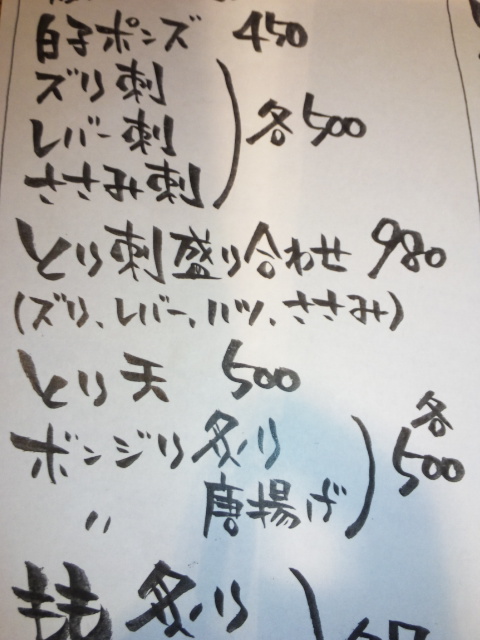 白子ポンズ 450
ズリ刺
レバー刺
ささみ刺
各500
とり刺盛り合わせ 980
(ズリ、レバー、ハツ、ささみ)
とり天 500
ボンジリ炙り
〃 唐揚げ
各500
もも炙り